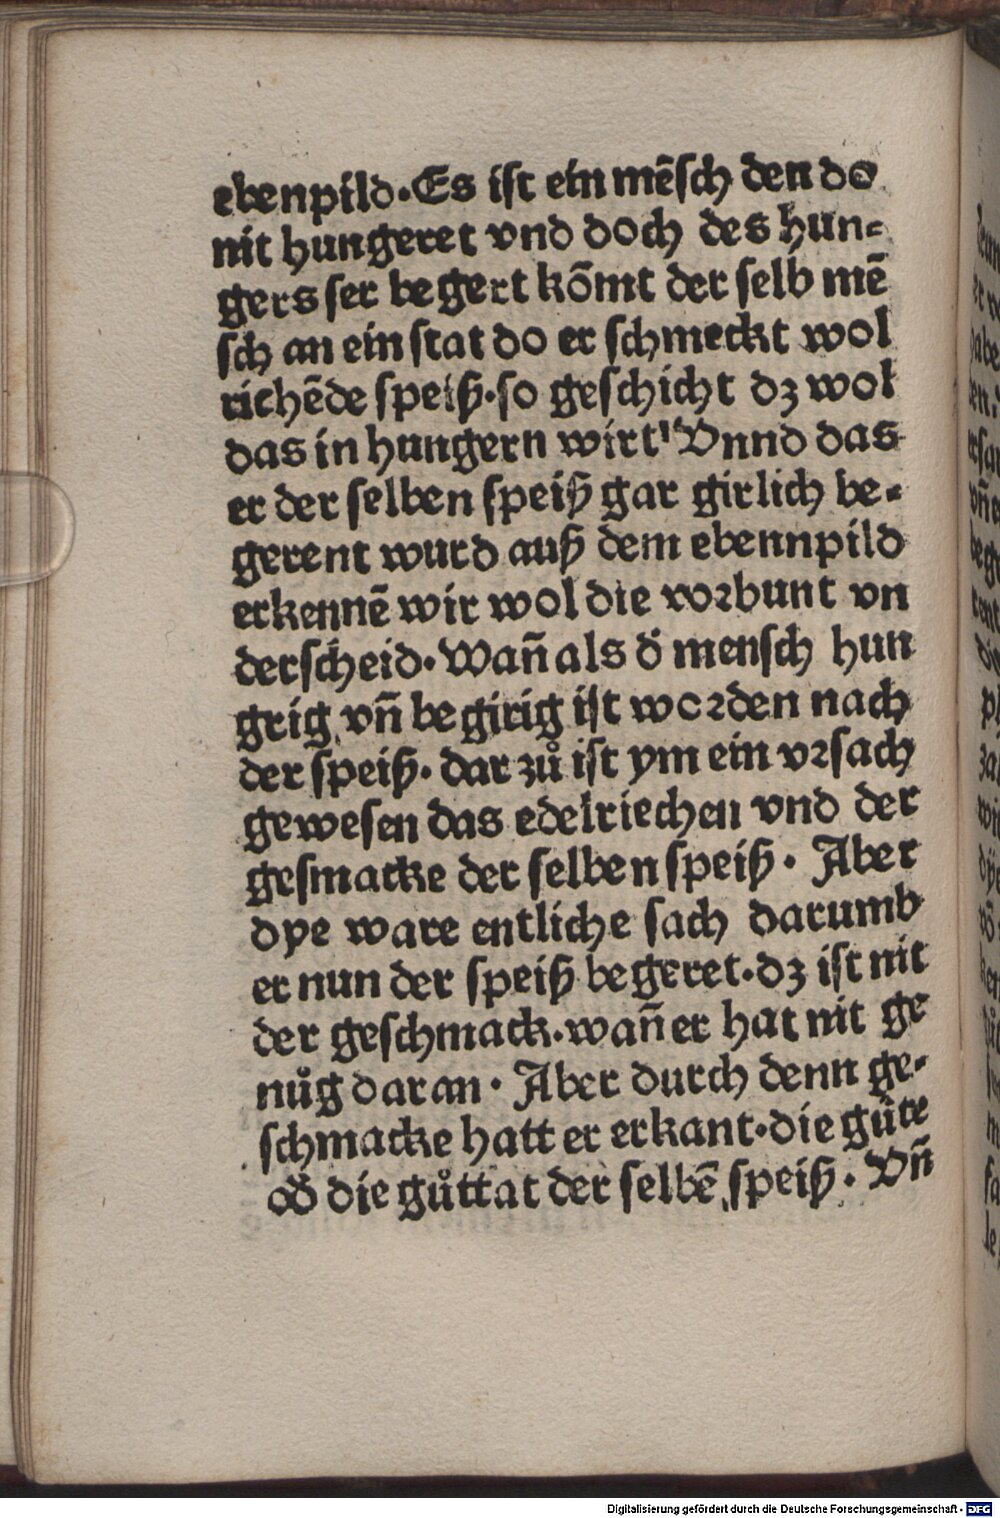 ebenpild. Es ist ein mēsch den do
nit hungeret vnd doch des hun⸗
gers ser begert kōmt der selb mē
sch an ein stat do er schmeckt wol
richēde speiß. so geschicht dz wol
das in hungern wirt' Vnnd das
er der selben speiß gar girlich be⸗
gerent wurd auß dem ebennpild
erkennē wir wol die vorbunt vn
derscheid. Wan̄ als d̕ mensch hun
grig vn̄ begirig ist worden nach
der speiß. dar zů ist ym ein vrsach
gewesen das edelriechen vnd der
gesmacke der selben speiß. Aber
dye ware entliche sach darumb
er nun der speiß begeret. dz ist nit
der geschmack. wan̄ er hat nit ge
nůg daran. Aber durch denn ge⸗
schmacke hatt er erkant. die gůte
od̕ die gůttat der selbē speiß. Vn̄
Digitalisierung gefördert durch die Deutsche Forschungsgemeinschaft - DFG